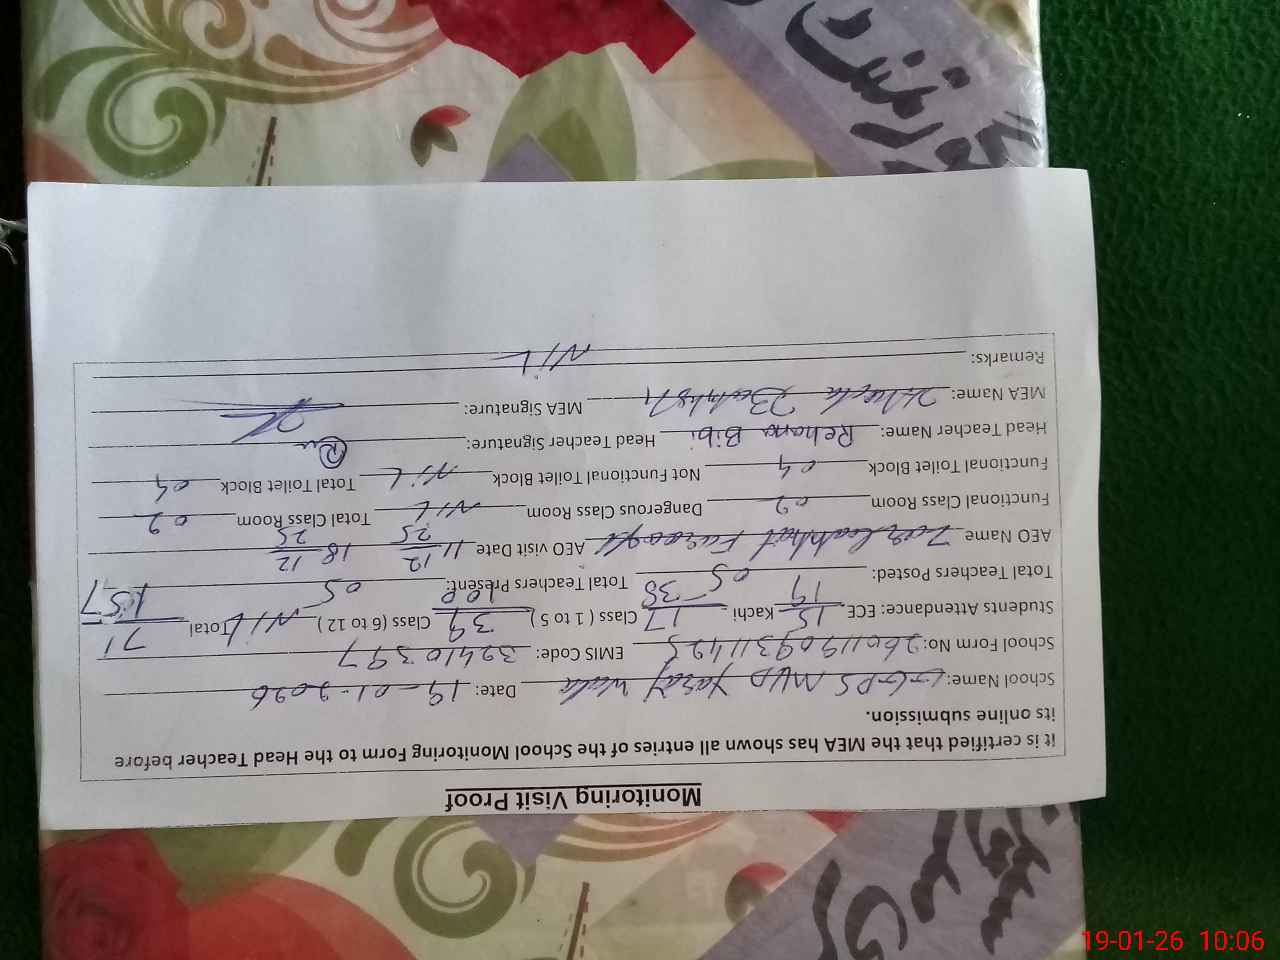 Monitoring Visit Proof
it is certified that the MEA has shown all entries of the School Monitoring Form to the Head Teacher before
its online submission.
School Name: GPS Date: 19-01-2026
School Form No: EMIS Code: 32410397
Students Attendance: ECE 15/19 Kachi 17/38 Class ( 1 to 5 ) 39 Class (6 to 12 ) NIL Total 71/157
Total Teachers Posted: 05 Total Teachers Present: 05
AEO Name AEO visit Date 11/12/25 18/12/25
Functional Class Room 02 Dangerous Class Room NIL Total Class Room 02
Functional Toilet Block 04 Not Functional Toilet Block NIL Total Toilet Block 04
Head Teacher Name: Rehana Bibi Head Teacher Signature:
MEA Name: MEA Signature:
Remarks: NIL
19-01-26 10:06